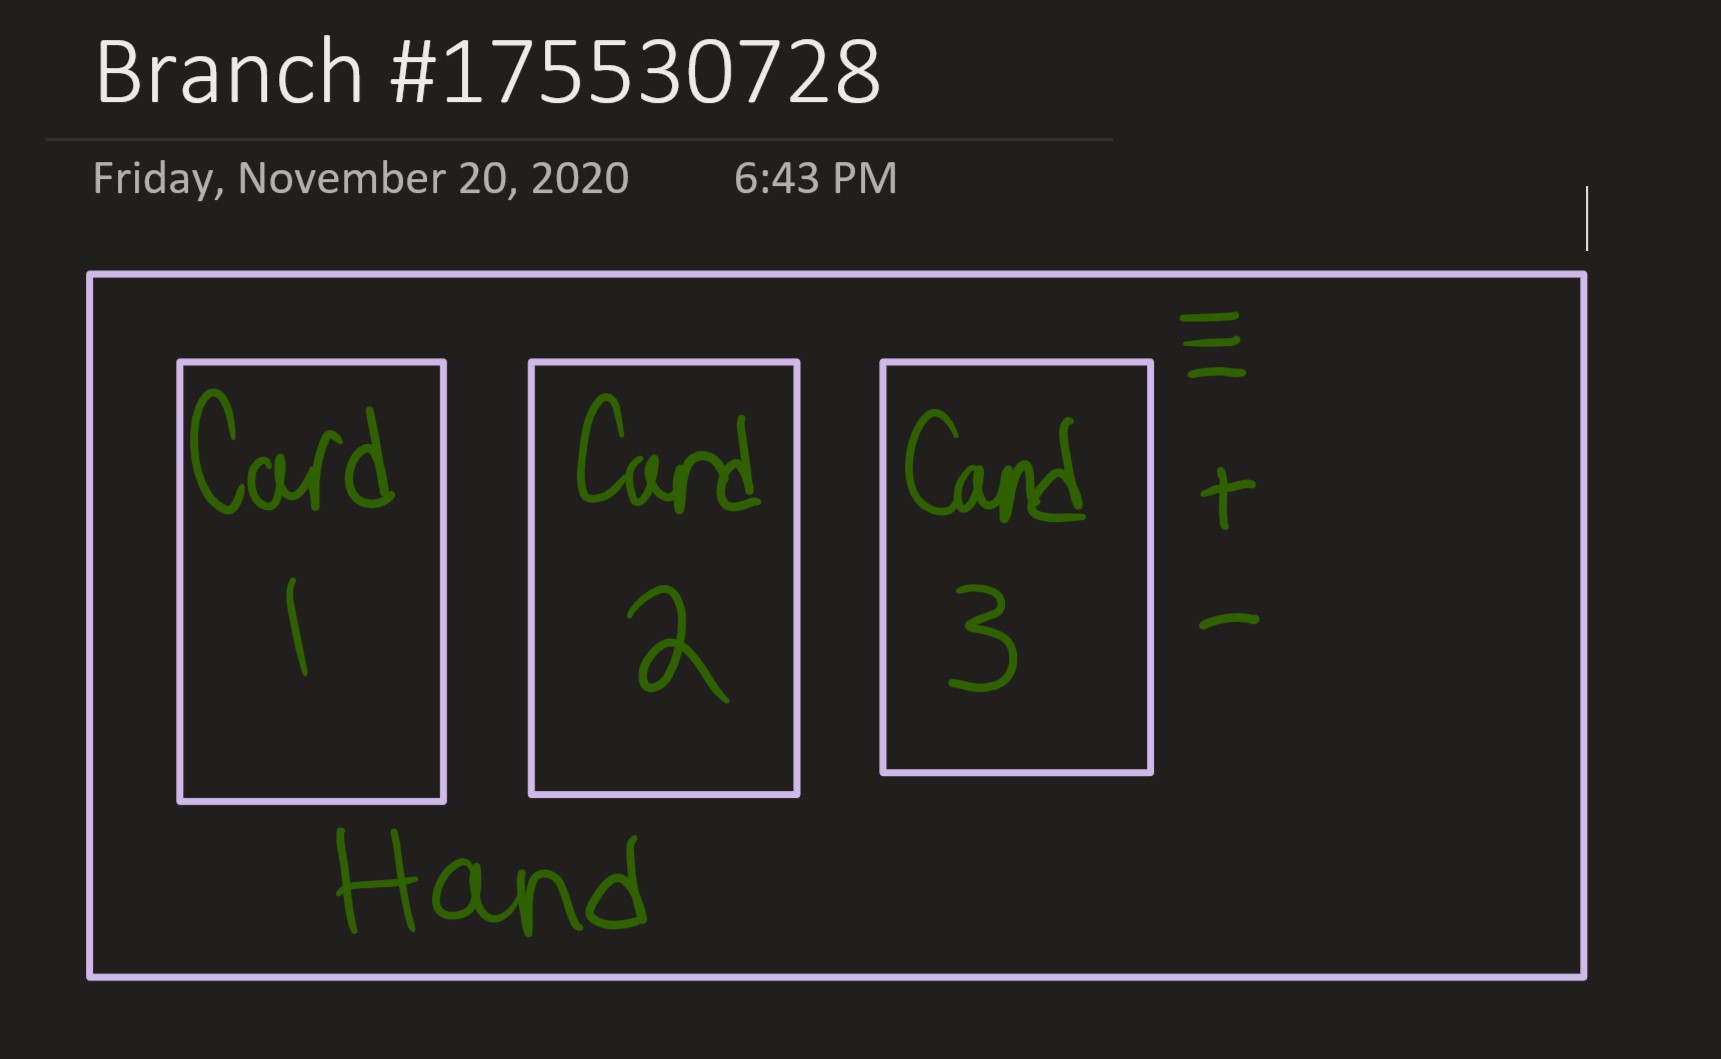 Branch #175530728
Friday, November 20, 2020 6:43 PM
Card Card Card
1 2 3
+
-
Hand